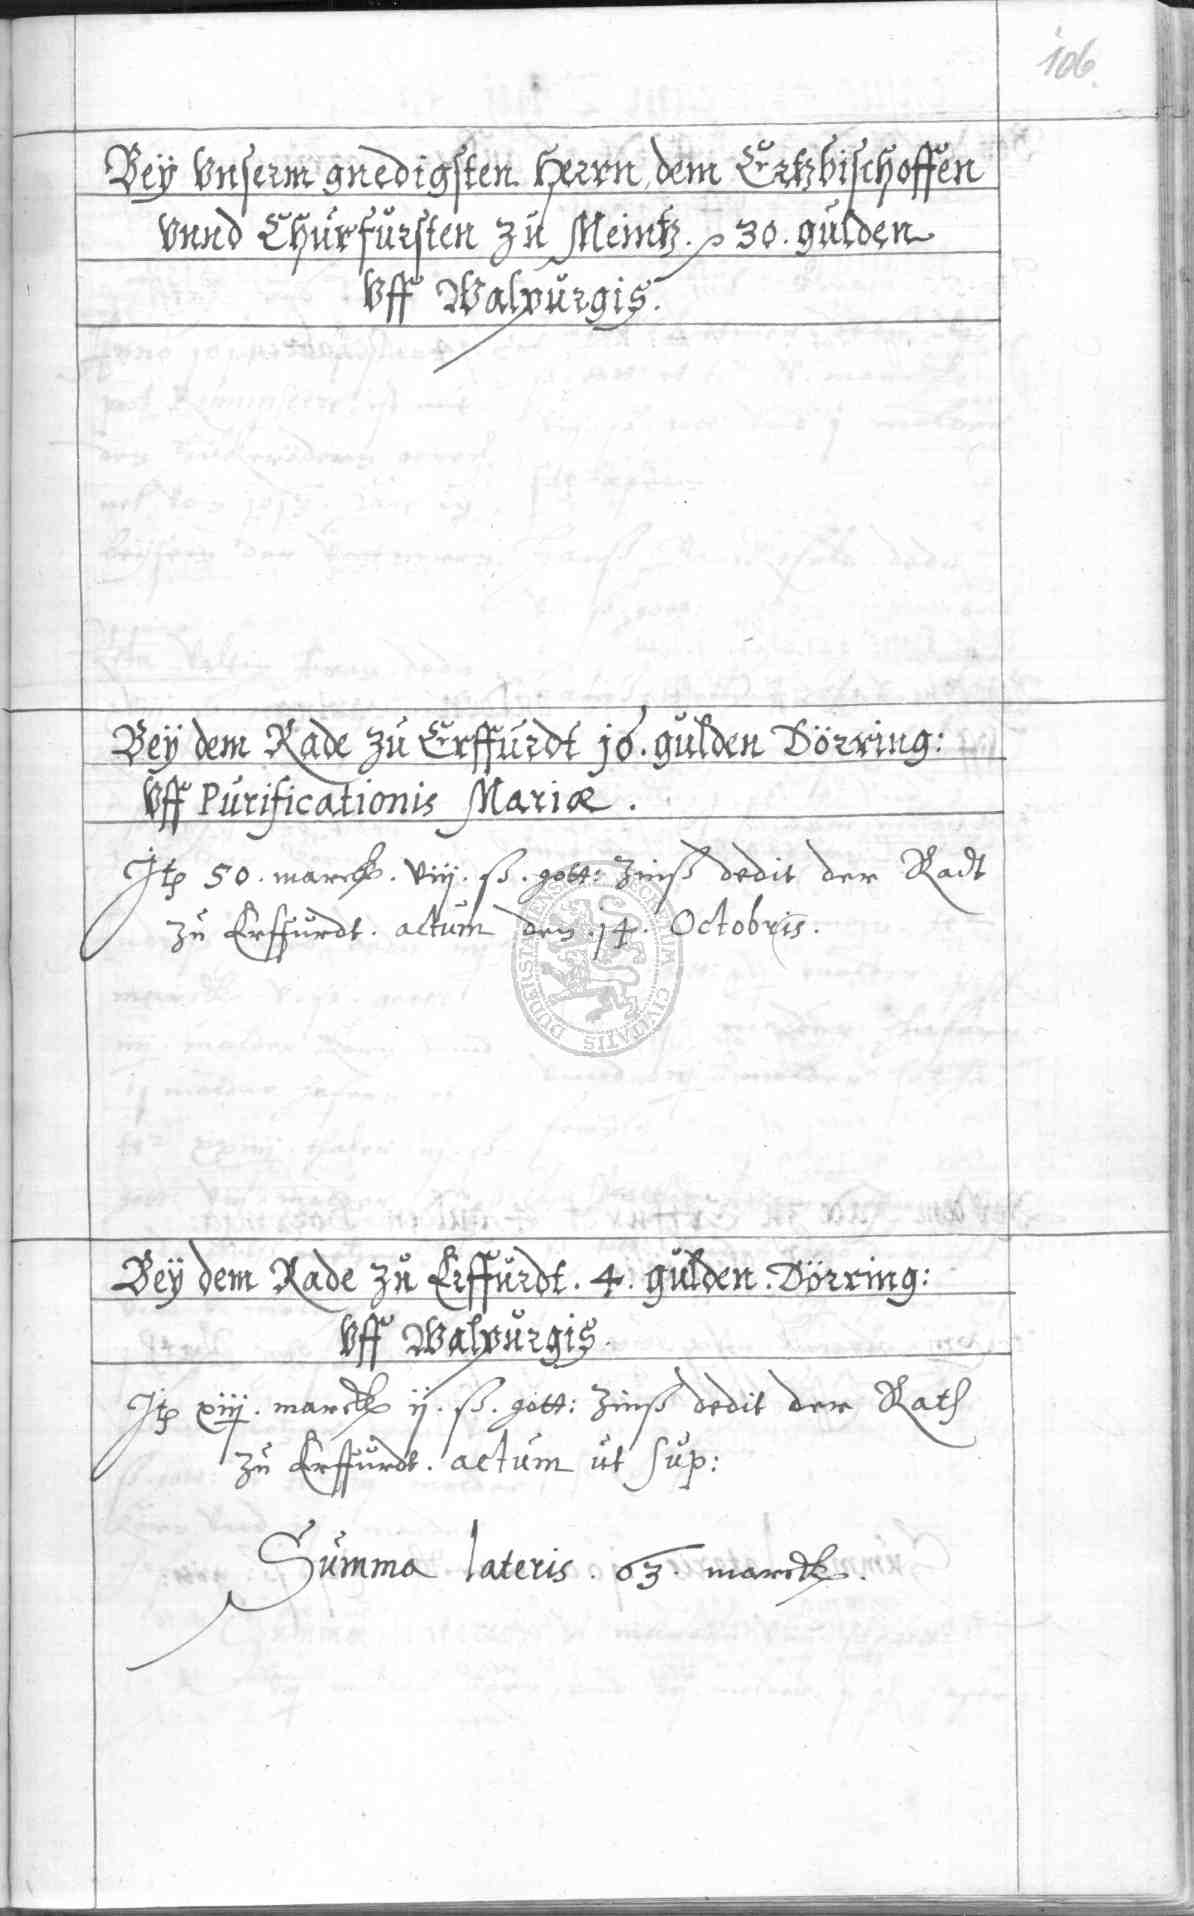 106.
Beÿ Vnserm gnedigsten Herrn dem Ertzbischoffen
Vnnd Churfursten zu Meintz. 30. gulden
Vff Walpurgis.
Beÿ dem Rade zu Erffurdt 16. gulden Dörring:
Vff Purificationis Mariæ.
Jtp 50. marck. viij. ß. gott: Zinß dedit der Radt
zu Erffurdt. actum den .14. Octobris.
DUDERSTADIENSIS SECRETUM CIVITATIS
Beÿ dem Rade zu Erffurdt. 4. gulden. Dörring:
Vff Walpurgis.
Jtp xiij. marck ij. ß. gott: Zinß dedit der Rath
zu Erffurdt. actum ut sup:
Summa lateris. 63. marck.